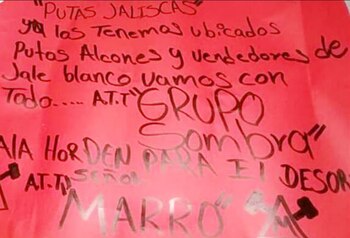 "PUTAS JALISCAS"
ya los Tenemos ubicados
Putos Alcones y vendedores de
Jale blanco vamos con
Todo..... A.T.T "GRUPO
Sombra"
A HORDEN PARA El DESOR
AT.T. SEÑOR
"MARRO"